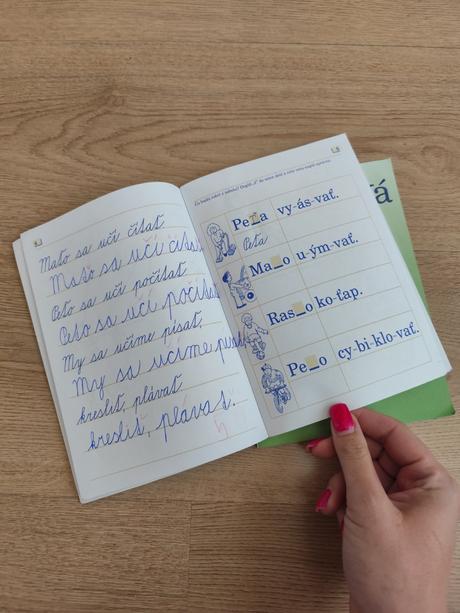 Maťo sa učí čítať
Maťo sa učí čítať
Peťo sa učí počítať
Peťo sa učí počítať
My sa učíme písať,
My sa učíme písať,
kresliť, plávať
kresliť, plávať.
Peťa vy-ás-vať.
Peťa
Ma_o u-ým-vať.
Ras_o ko-ťap.
Pe_o cy-bi-klo-vať.
á